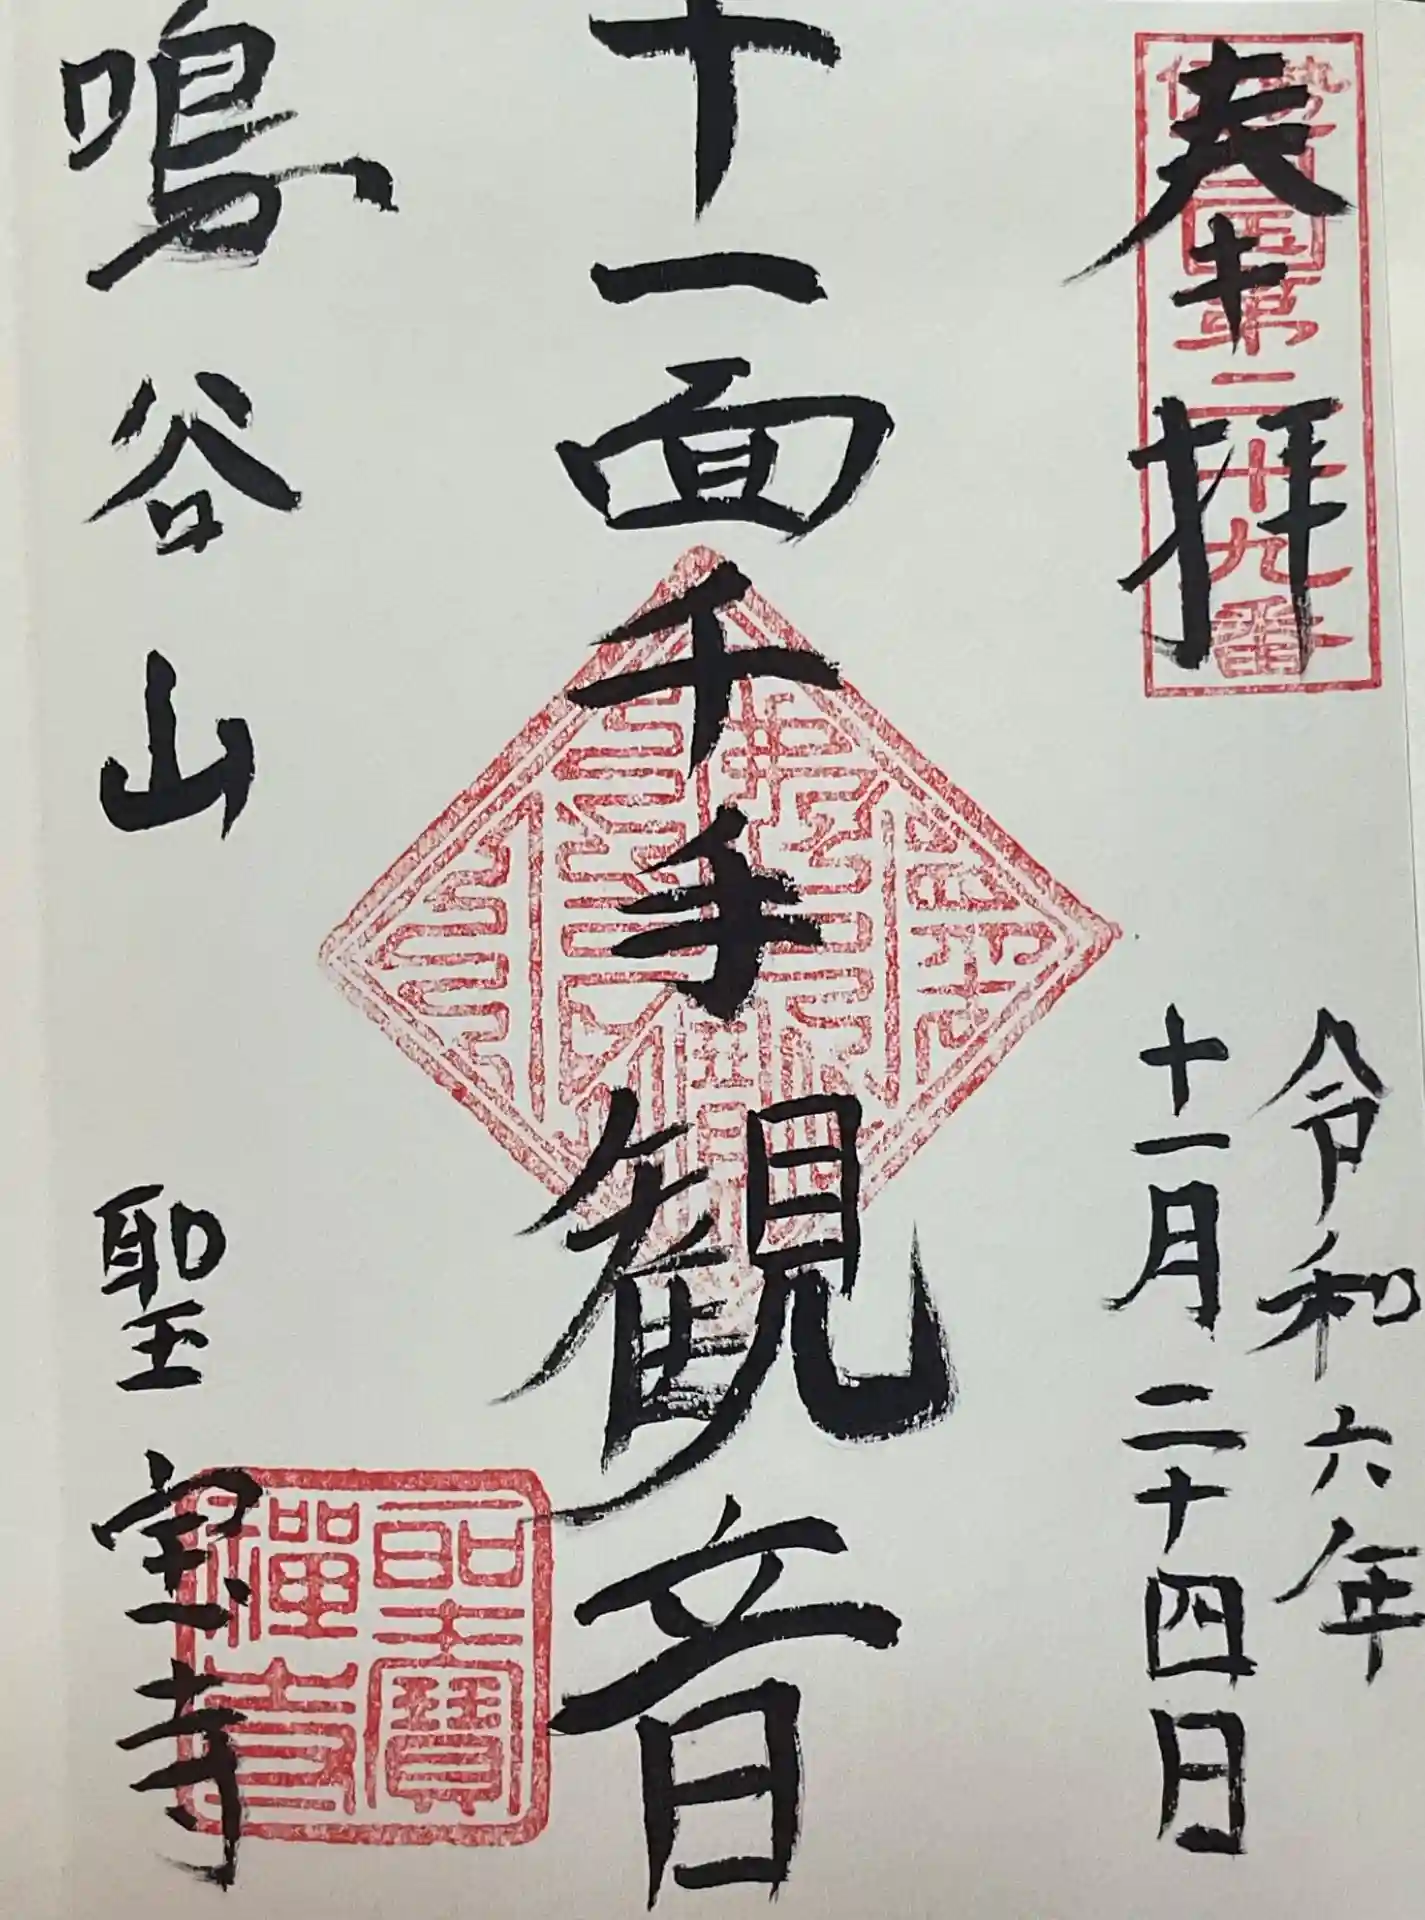 奉拝
伊勢西国第二十九番
令和六年
十一月二十四日
十一面千手観音
鳴谷山 聖宝寺
聖寶禅寺